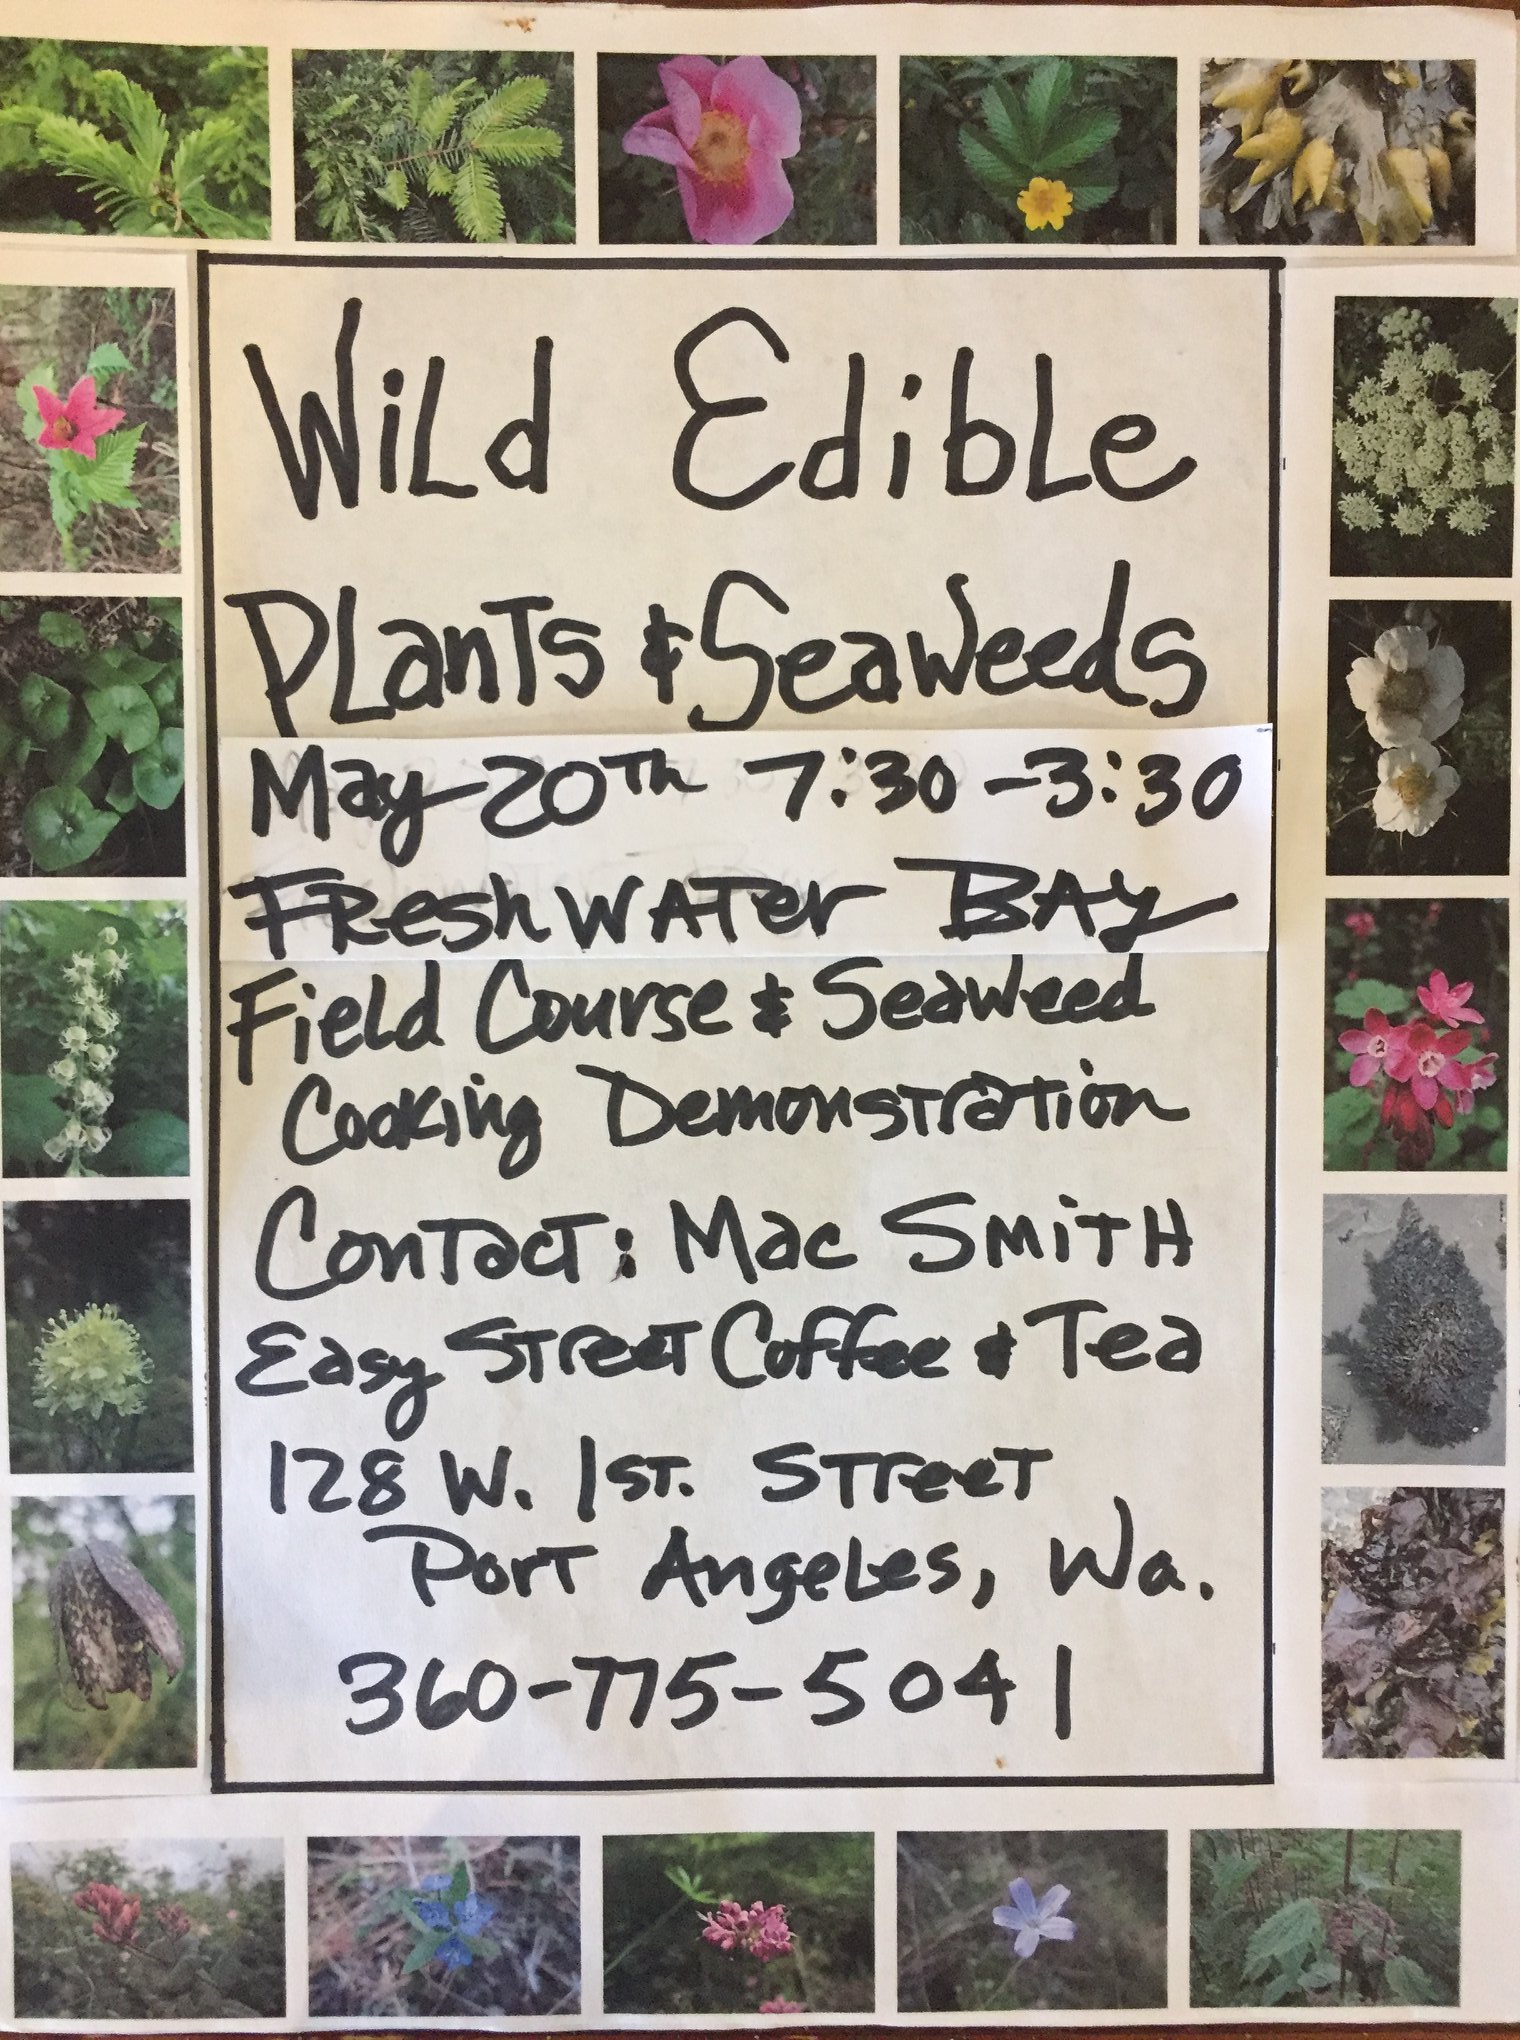 Wild Edible
Plants & Seaweeds
May 20th 7:30-3:30
Freshwater Bay
Field Course & Seaweed
Cooking Demonstration
Contact: Mac Smith
Easy Street Coffee & Tea
128 W. 1st. Street
Port Angeles, Wa.
360-775-5041